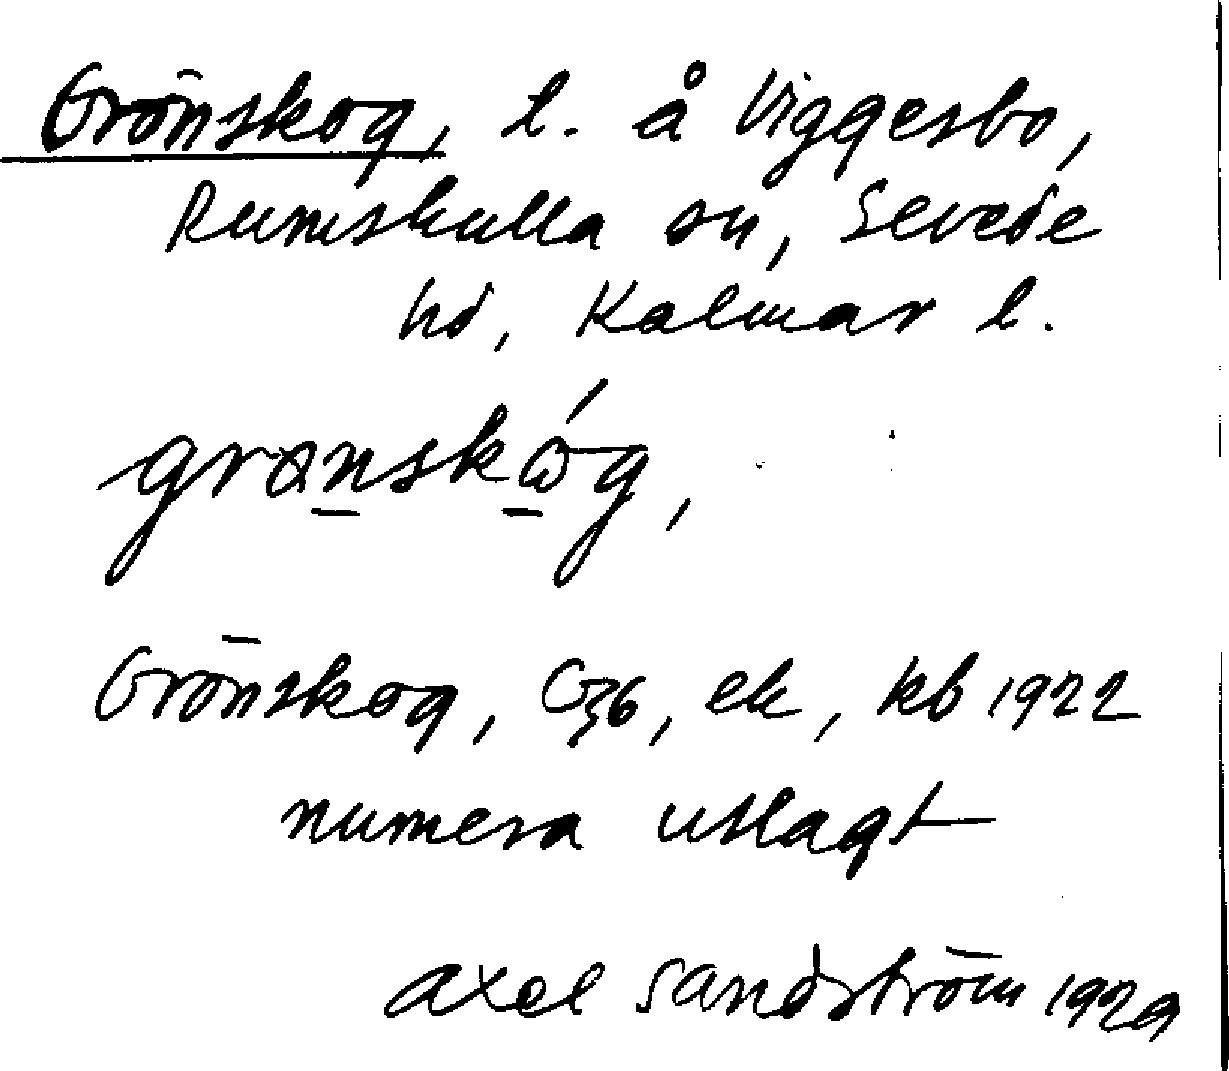 Grönskog, l. å Viggesbo,
Rumskulla sn, Sevede
hd, Kalmar l.
grønskóg,
Grönskog, G36, ek, kb 1922
numera utlagt
Axel Sandström 1929